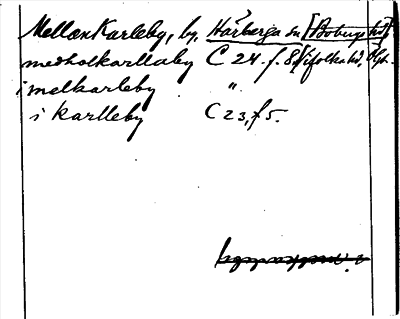 Mellan Karleby, by, Hårberga sn [Bobergs hd]
medholkarllaby C 24. f. 8 (Vifolka hd, Ög.
i melkarleby "
i karlleby C 23, f 5.